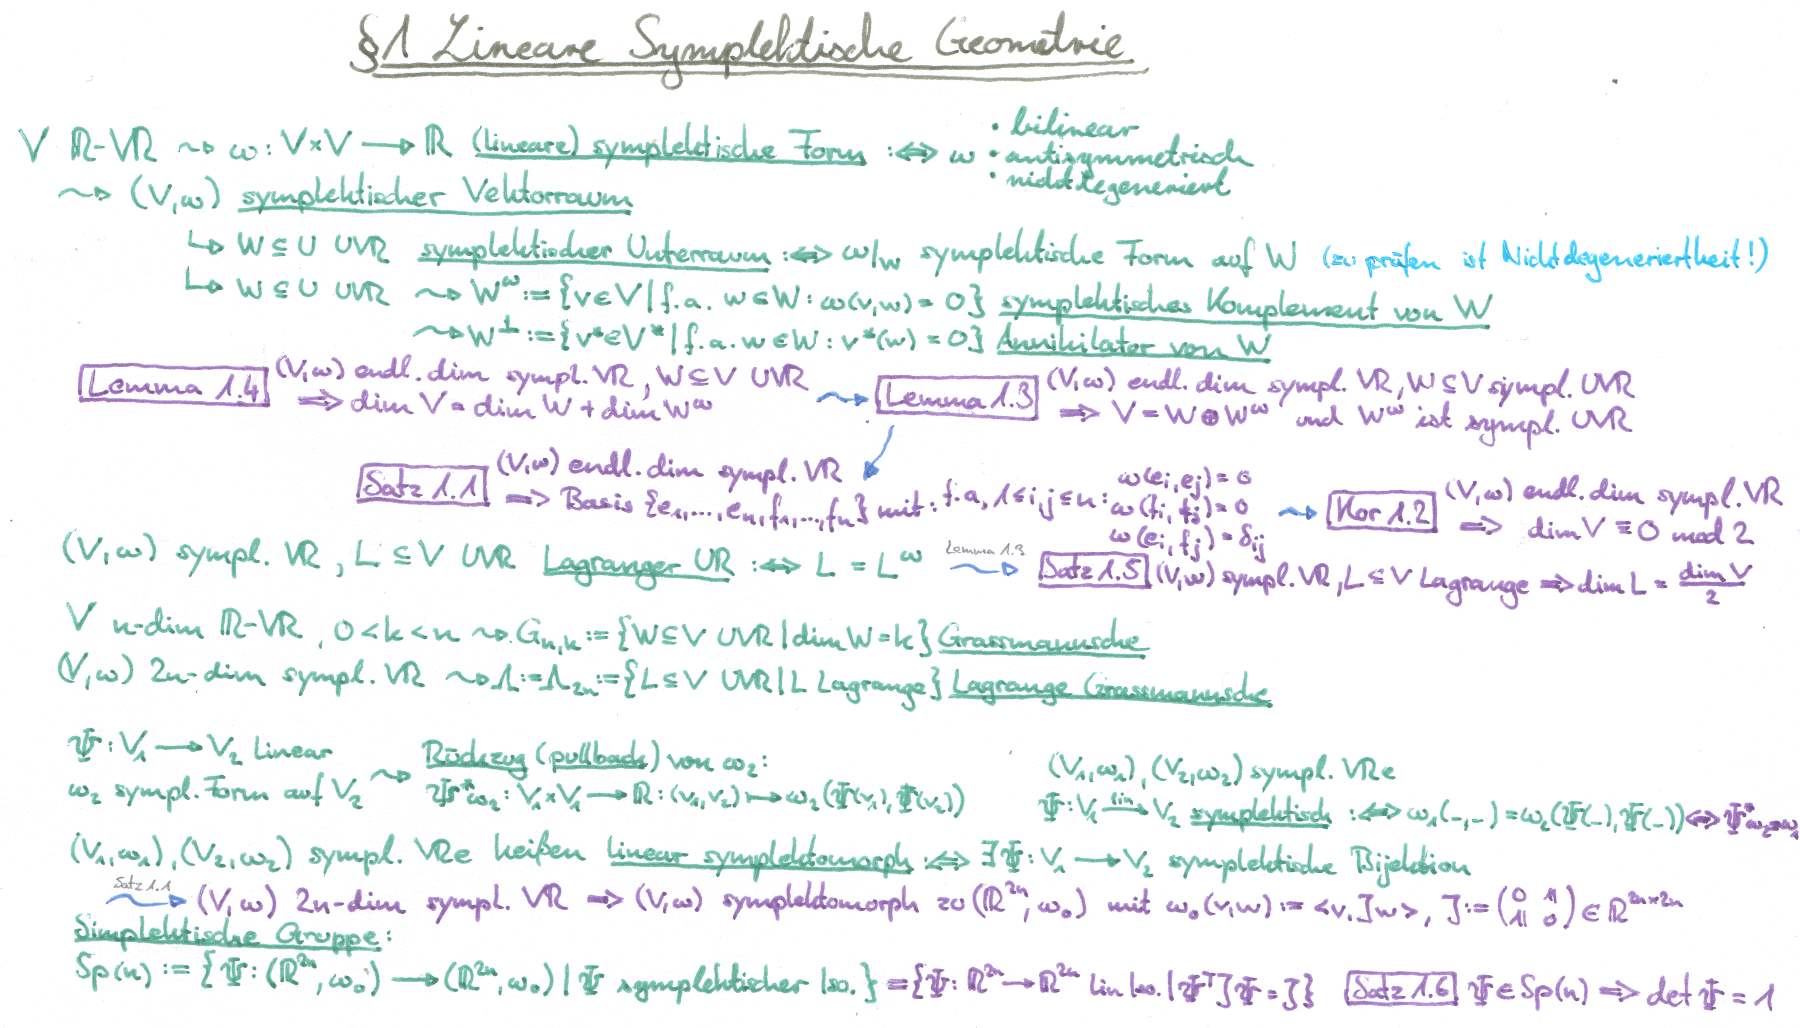 §1 Lineare Symplektische Geometrie
V ℝ-VR ⇝ ω: V×V ⟶ ℝ (lineare) symplektische Form :⟺ ω • bilinear
• antisymmetrisch
• nichtdegeneriert
⇝ (V,ω) symplektischer Vektorraum
↳ W ⊆ U UVR symplektischer Unterraum :⟺ ω|_W symplektische Form auf W (zu prüfen ist Nichtdegeneriertheit!)
↳ W ⊆ U UVR ⇝ W^ω := {v∈V | f.a. w∈W: ω(v,w) = 0} symplektisches Komplement von W
⇝ W^⊥ := {v*∈V* | f.a. w∈W: v*(w) = 0} Annihilator von W
Lemma 1.4 (V,ω) endl. dim sympl. VR, W ⊆ V UVR
⟹ dim V = dim W + dim W^ω
⇝ Lemma 1.3 (V,ω) endl. dim sympl. VR, W ⊆ V sympl. UVR
⟹ V = W ⊕ W^ω und W^ω ist sympl. UVR
Satz 1.1 (V,ω) endl. dim sympl. VR
⟹ Basis {e₁,…,eₙ,f₁,…,fₙ} mit: f.a. 1≤i,j≤n: ω(e_i,e_j) = 0
ω(f_i,f_j) = 0
ω(e_i,f_j) = δ_ij
⇝ Kor 1.2 (V,ω) endl. dim sympl. VR
⟹ dim V ≡ 0 mod 2
(V,ω) sympl. VR, L ⊆ V UVR Lagranger UR :⟺ L = L^ω
Lemma 1.3 ⇝ Satz 1.5 (V,ω) sympl. VR, L ⊆ V Lagrange ⟹ dim L = dim V / 2
V n-dim ℝ-VR, 0<k<n ⇝ G_{n,k} := {W ⊆ V UVR | dim W = k} Grassmannsche
(V,ω) 2n-dim sympl. VR ⇝ Λ := Λ_{2n} := {L ⊆ V UVR | L Lagrange} Lagrange Grassmannsche
Ψ: V₁ ⟶ V₂ linear
ω₂ sympl. Form auf V₂
⇝ Rückzug (pullback) von ω₂:
Ψ*ω₂: V₁×V₁ ⟶ ℝ: (v₁,v₂) ⟼ ω₂(Ψ(v₁),Ψ(v₂))
(V₁,ω₁), (V₂,ω₂) sympl. VRe
Ψ: V₁ ⟶^{lin} V₂ symplektisch :⟺ ω₁(–,–) = ω₂(Ψ(–),Ψ(–)) ⟺ Ψ*ω₂=ω₁
(V₁,ω₁), (V₂,ω₂) sympl. VRe heißen linear symplektomorph :⟺ ∃Ψ: V₁ ⟶ V₂ symplektische Bijektion
Satz 1.1 ⇝ (V,ω) 2n-dim sympl. VR ⟹ (V,ω) symplektomorph zu (ℝ^{2n},ω₀) mit ω₀(v,w) := <v,Jw>, J := (0 𝟙 𝟙 0) ∈ ℝ^{2n×2n}
Simplektische Gruppe:
Sp(n) := {Ψ: (ℝ^{2n},ω₀) ⟶ (ℝ^{2n},ω₀) | Ψ symplektischer Iso.} = {Ψ: ℝ^{2n} ⟶ ℝ^{2n} lin Iso. | Ψ^T J Ψ = J} Satz 1.6 Ψ∈Sp(n) ⟹ det Ψ = 1